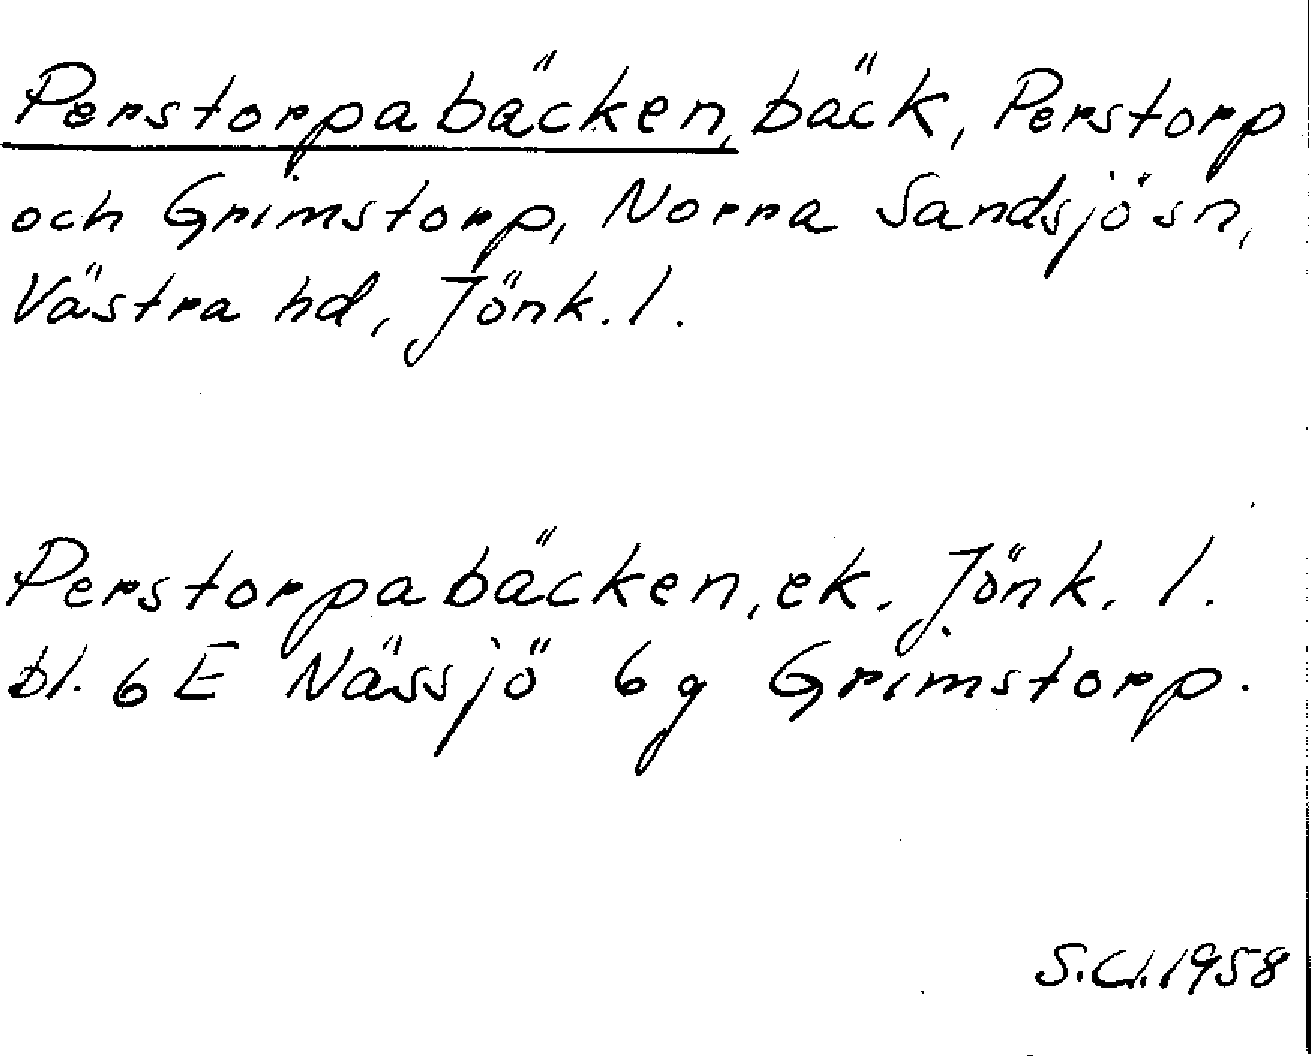 Perstorpabäcken, bäck, Perstorp
och Grimstorp, Norra Sandsjö sn,
Västra hd, Jönk. l.
Perstorpabäcken, ek. Jönk. l.
bl. 6 E Nässjö 6 g Grimstorp.
S.Cl. 1958